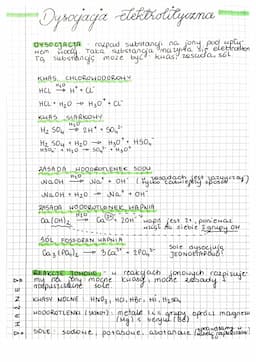 Dysocjacja elektrolityczna
DYSOCJACJA - rozpad substancji na jony pod wpły-
wem wody. Taka substancja nazywa się elektrolitem
Tą substancją może być kwas, zasada, sól.
KWAS CHLOROWODOROWY
HCL H₂O→ H⁺ + CL⁻
HCL + H₂O → H₃O⁺ + CL⁻
KWAS SIARKOWY
H₂SO₄ H₂O→ 2H⁺ + SO₄²⁻
H₂SO₄ + H₂O → H₃O⁺ + HSO₄⁻
HSO₄⁻ + H₂O → SO₄²⁻ + H₃O⁺
ZASADA WODOROTLENEK SODU
NaOH H₂O→ Na⁺ + OH⁻ (w zasadach jest zazwyczaj tylko
NaOH → Na⁺ + OH⁻
ZASADA WODOROTLENEK WAPNIA
Ca(OH)₂ H₂O→ Ca²⁺ + 2OH⁻ jest 2+, ponieważ
wapń ma do siebie 2 grupy OH
SÓL FOSFORAN WAPNIA
Ca₃(PO₄)₂ → 3Ca²⁺ + 2PO₄³⁻ sole dysocjują
JEDNOETAPOWO!
REAKCJE JONOWE - w reakcjach jonowych rozpisuje-
my na jony mocne kwasy, mocne zasady i
rozpuszczalne sole.
KWASY MOCNE: HNO₃, HCl, HBr, HI, H₂SO₄
WODOROTLENKI (MOCNE): metale 1 i 2 grupy oprócz magnezu
(Mg) i berylu (Be)
SOLE: sodowe, potasowe, azotanowe